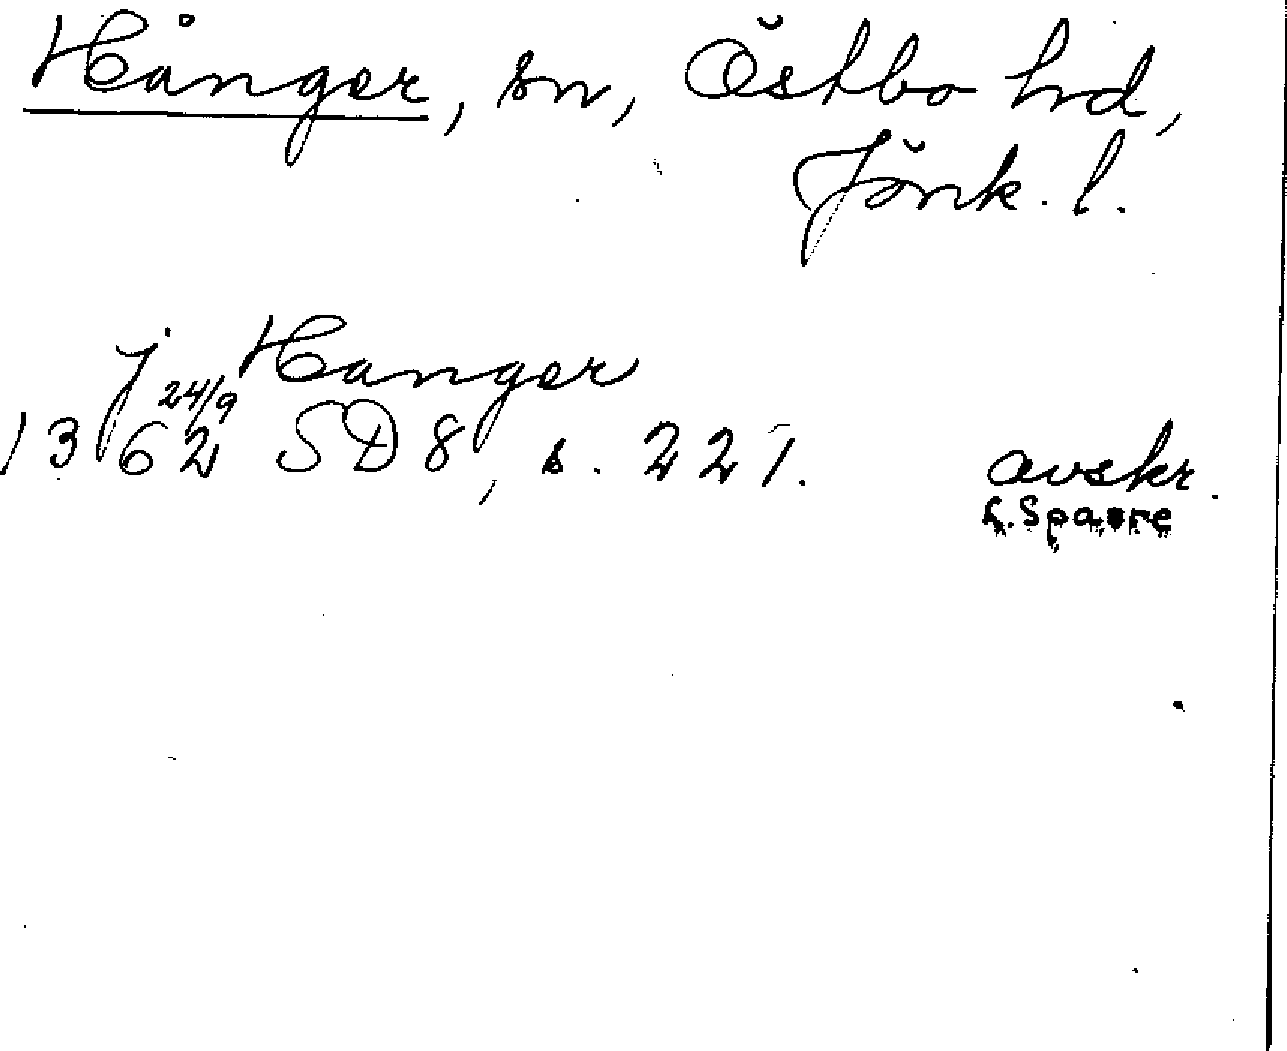 Hånger, sn, Östbo hd,
Jönk. l.
j Hanger
24/9
1362 SD 8, s. 227. avskr.
Sparre